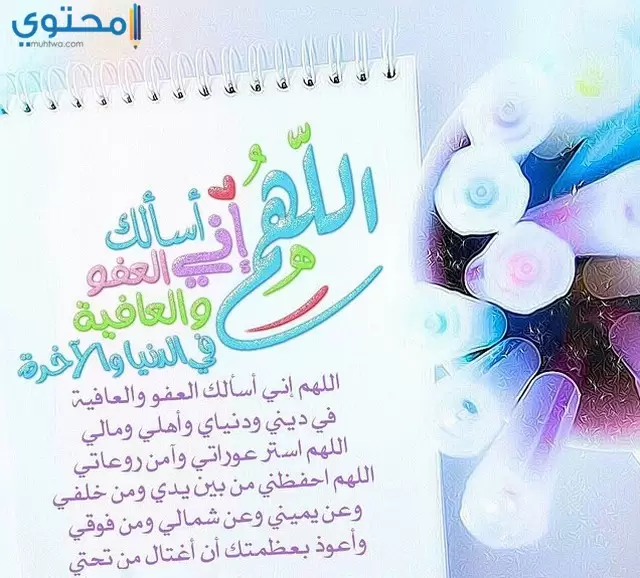 محتوي
muhtwa.com
اللّهُم
إني أسألك
العفو
والعافية
في الدنيا والآخرة
اللهم إني أسألك العفو والعافية
في ديني ودنياي وأهلي ومالي
اللهم استر عوراتي وآمن روعاتي
اللهم احفظني من بين يدي ومن خلفي
وعن يميني وعن شمالي ومن فوقي
وأعوذ بعظمتك أن أغتال من تحتي